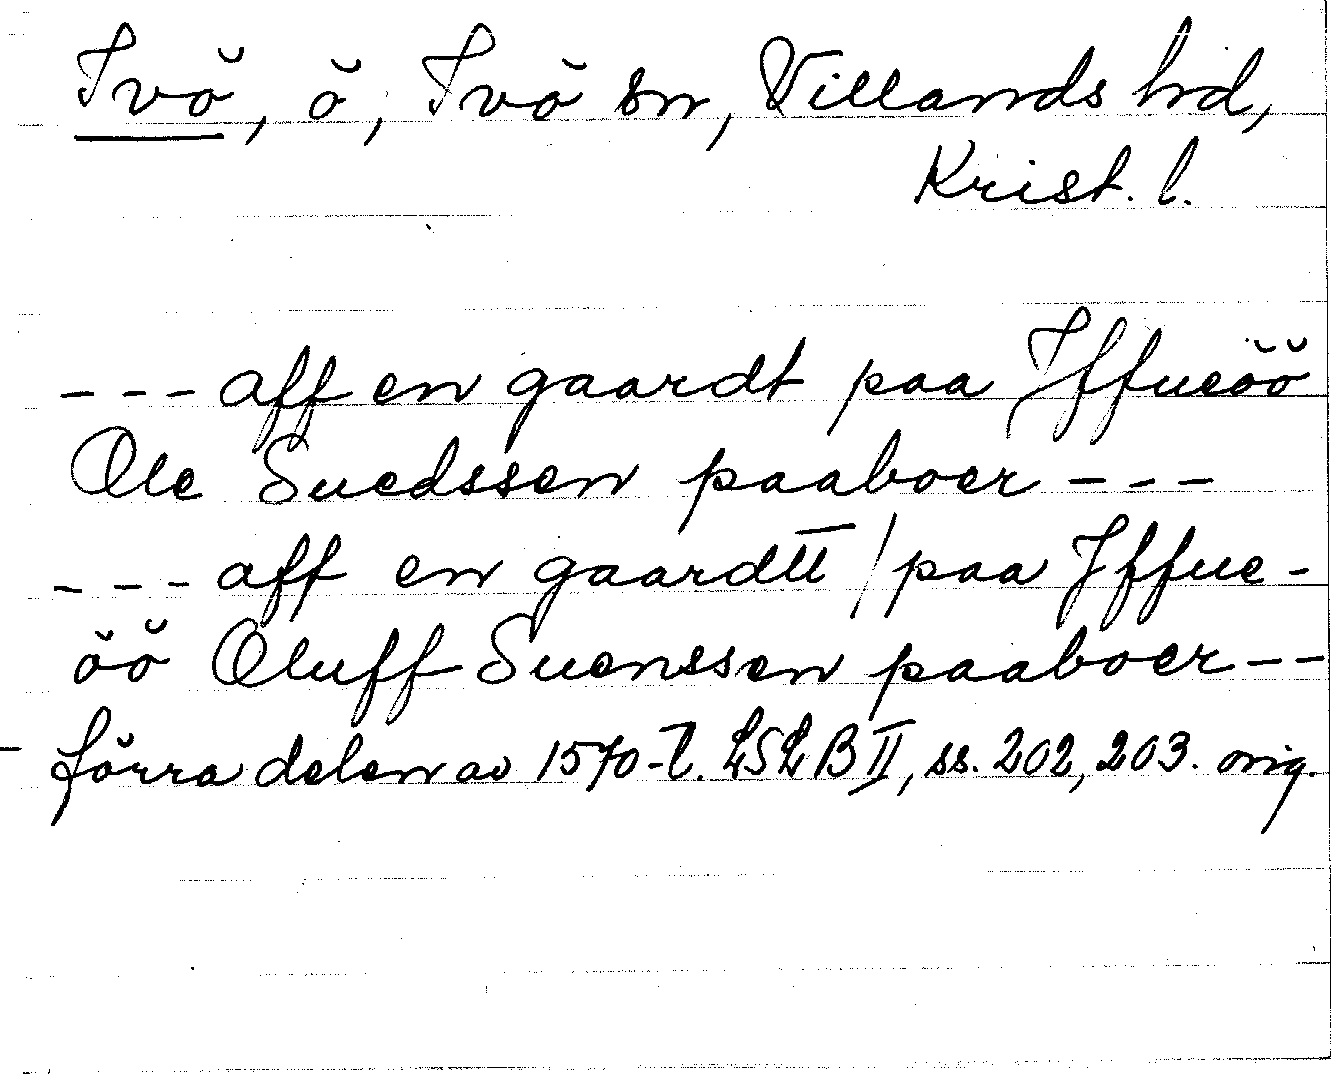 Ivö, ö, Ivö sn, Villands hrd,
Krist. l.
--- aff en gaardt paa Iffueöö
Ole Suedssen paaboer ---
--- aff en gaardtt / paa Iffue-
öö Oluff Suenssen paaboer --
- förra delen av 1570-t. LSLB II, ss. 202, 203. orig.